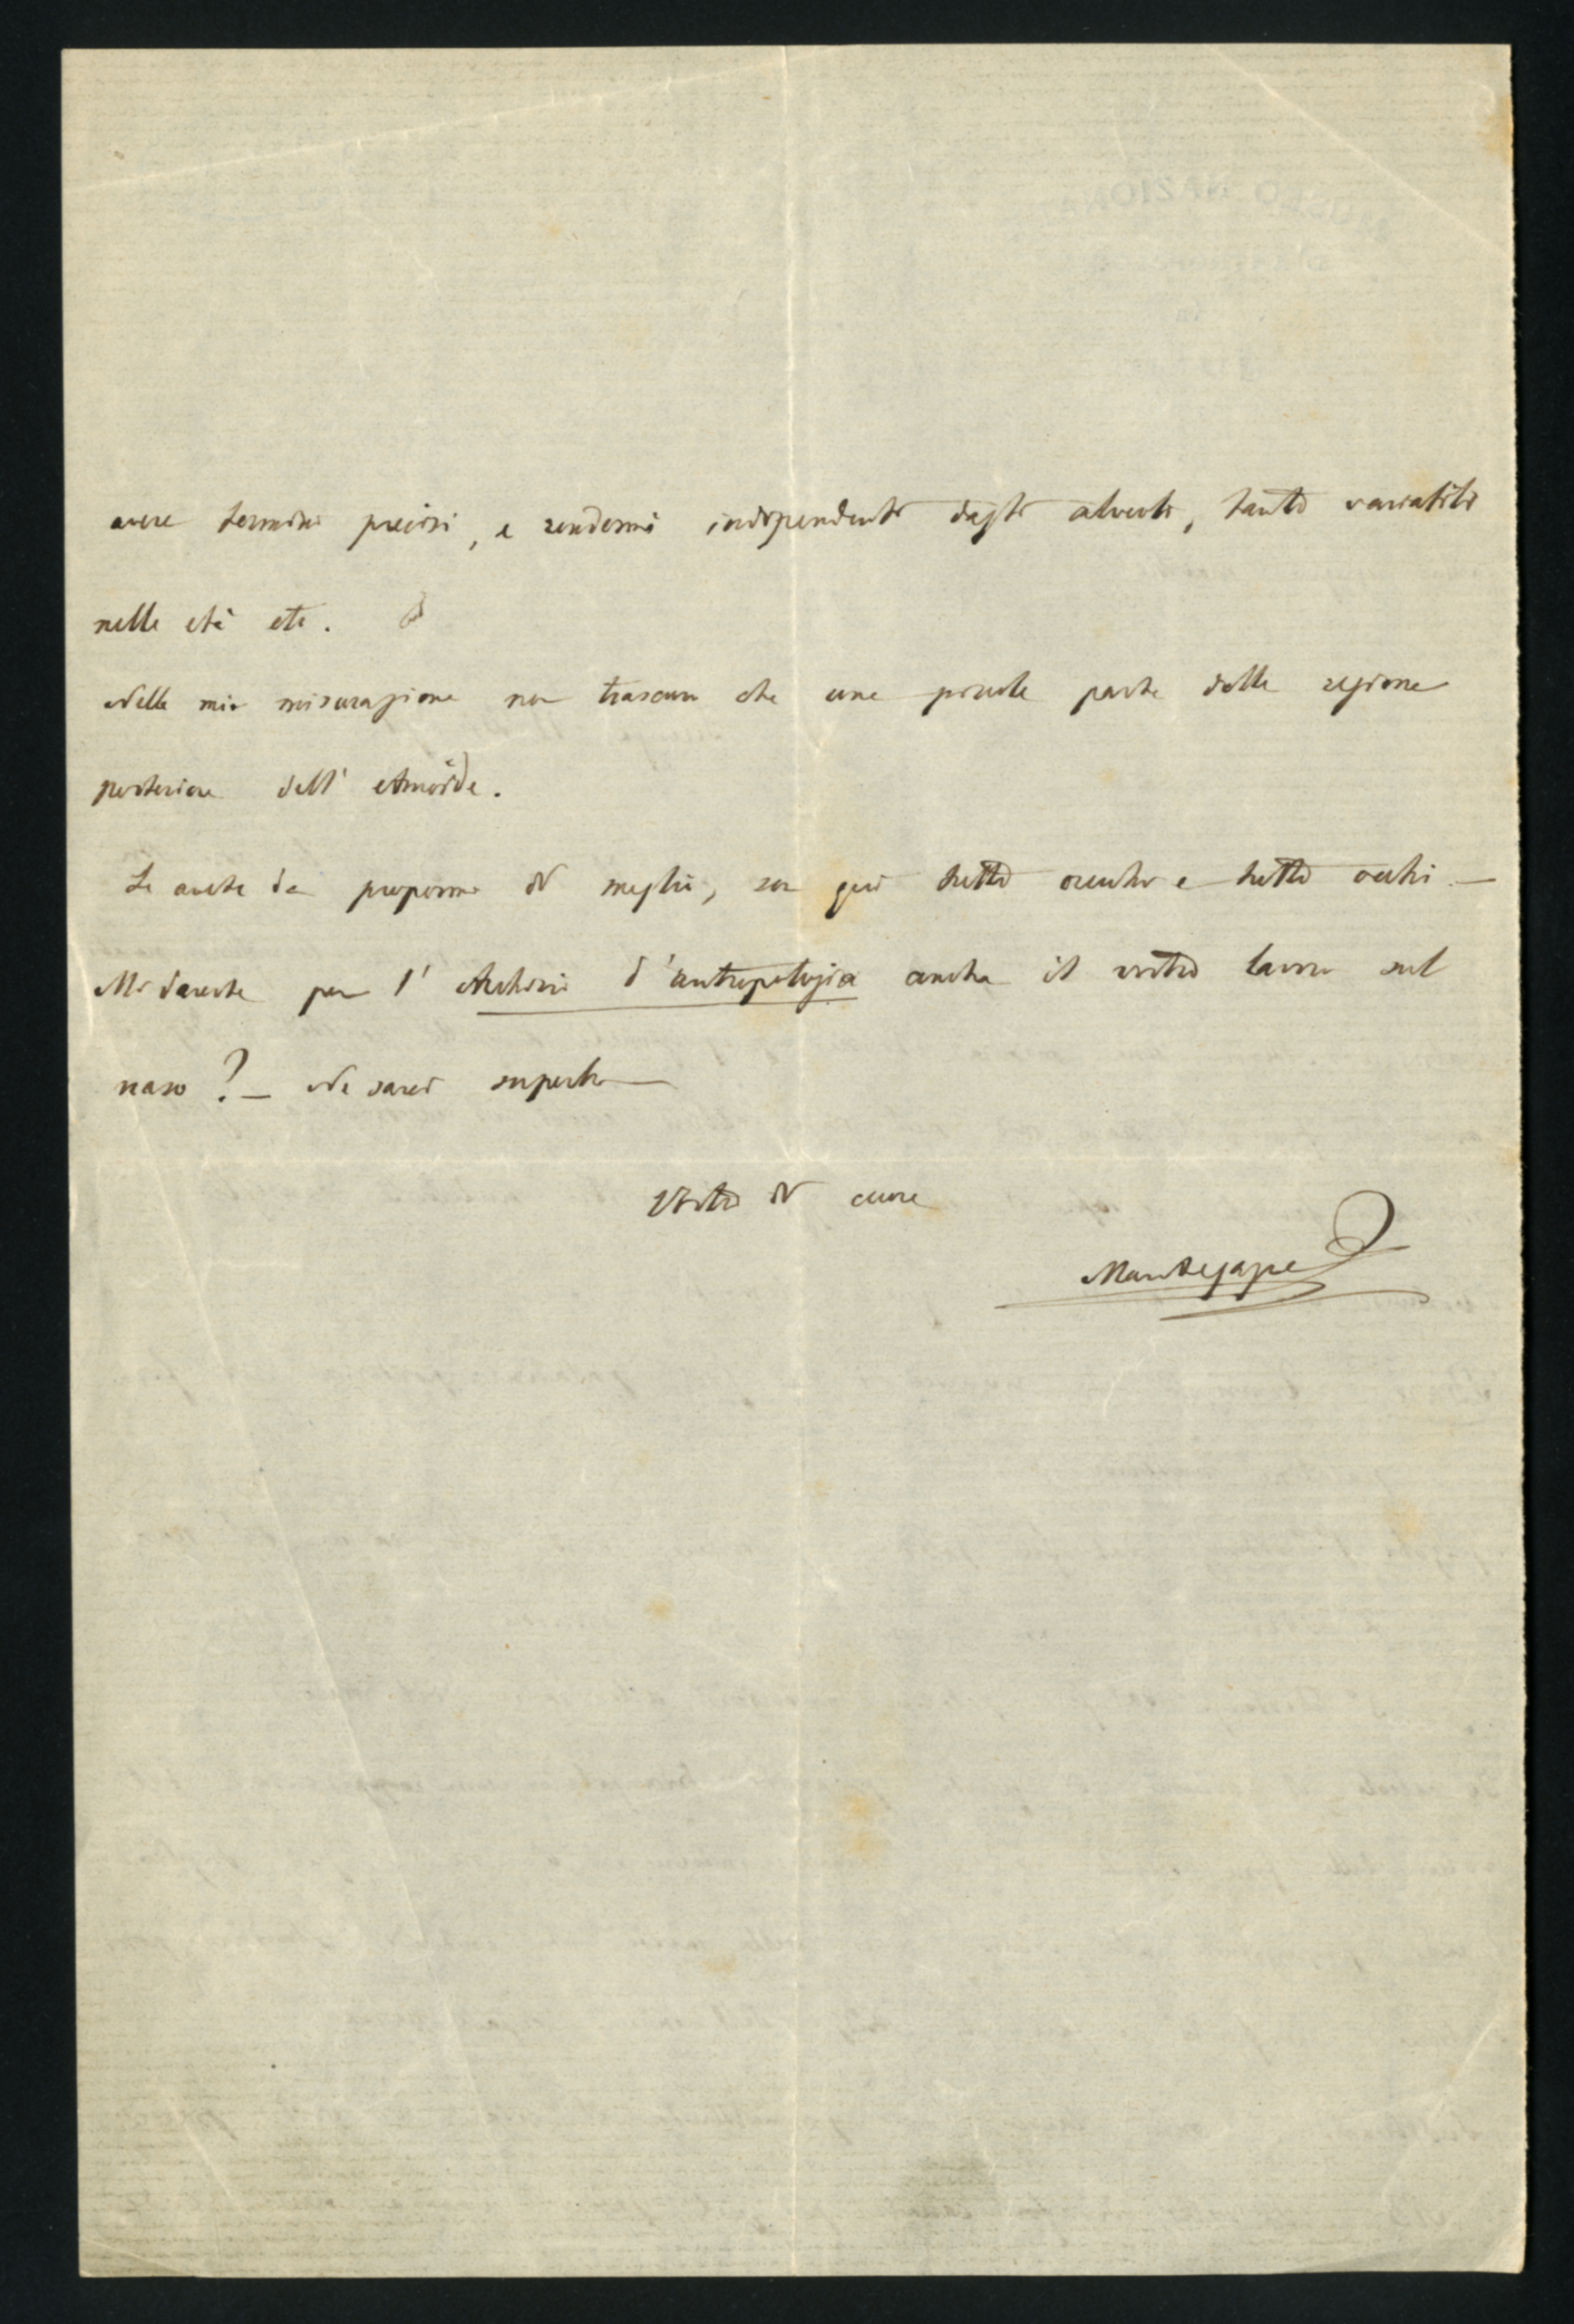 avere termini precisi, e rendermi indipendente dagli alveoli, tanto variabili
nelle età etc.
Nella mia misurazione non trascuro che una piccola parte della regione
posteriore dell' etmoide.
Se avete da propormi di meglio, son qui tutto orecchi e tutto occhi —
Mi dareste per l' Archivio d'antropologia anche il vostro lavoro sul
naso? — Ne sarei superbo —
Vostro di cuore
Mantegazza